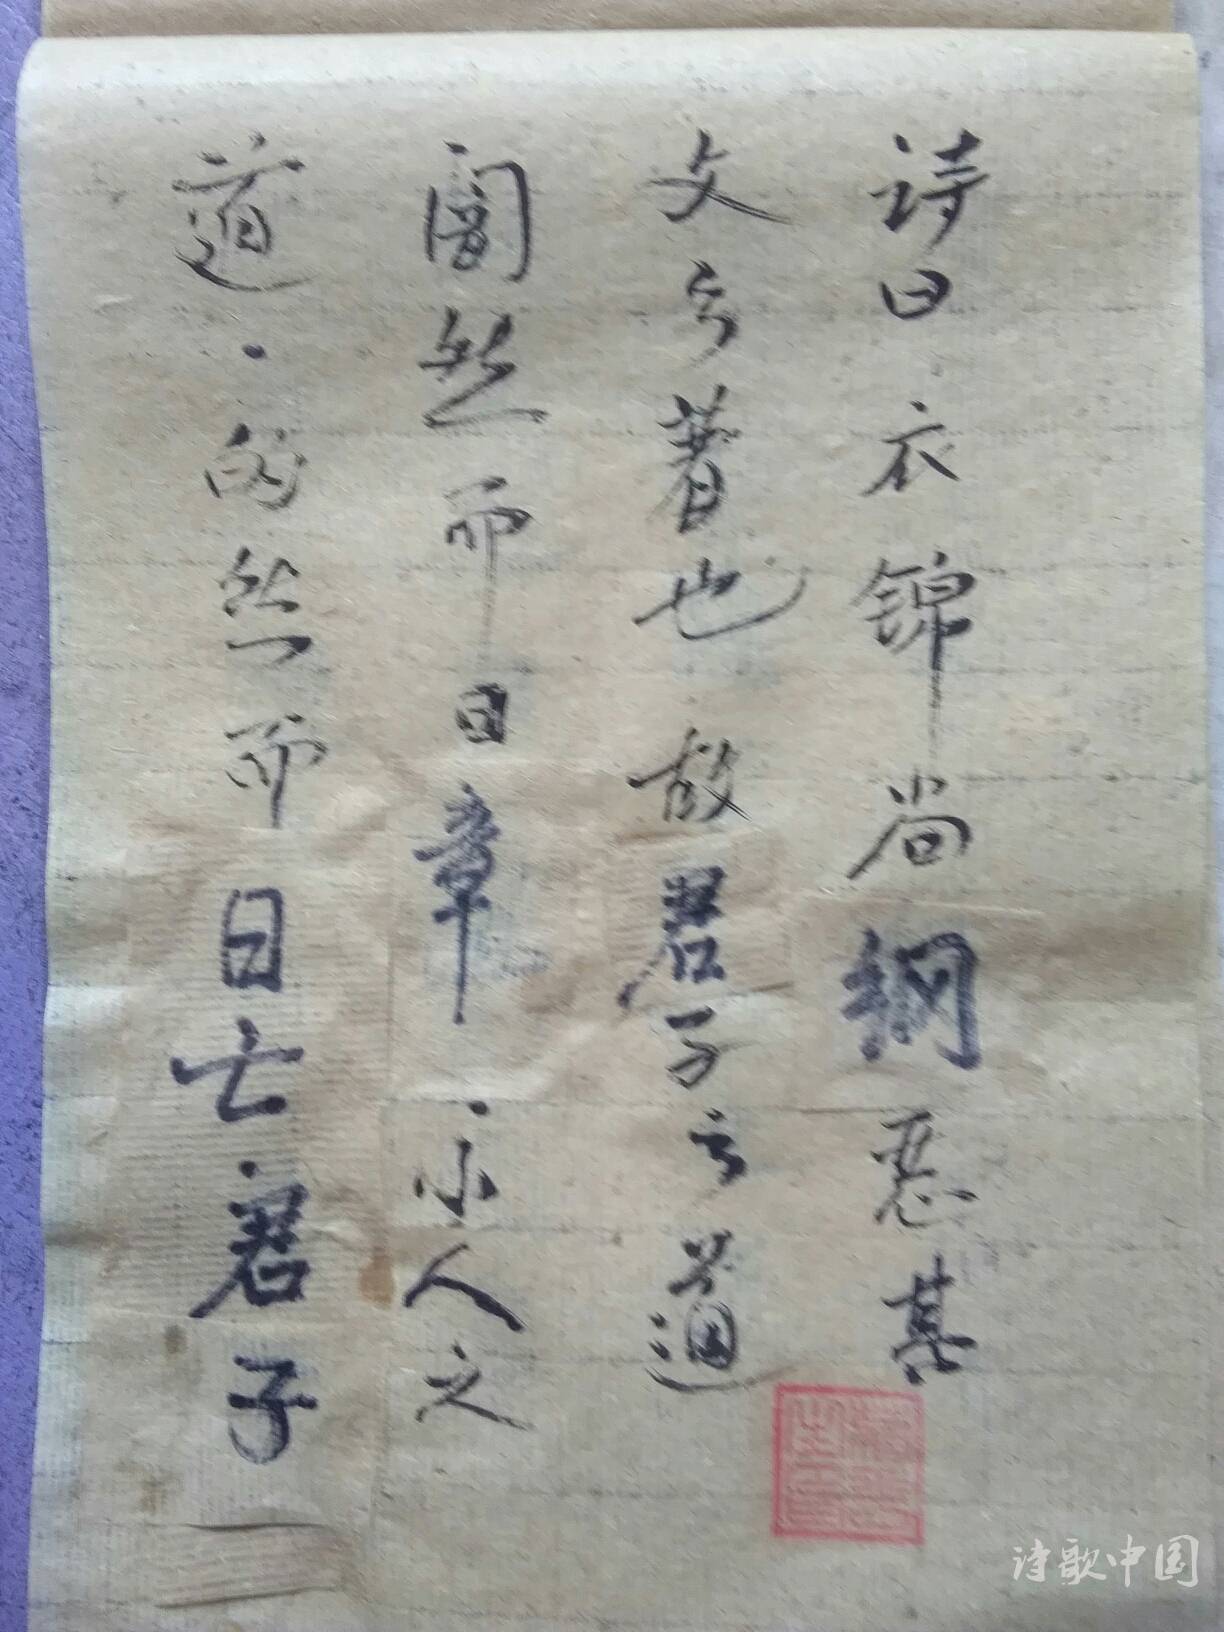 诗曰衣锦尚絅恶其
文之著也故君子之道
闇然而日章小人之
道的然而日亡君子
诗歌中国